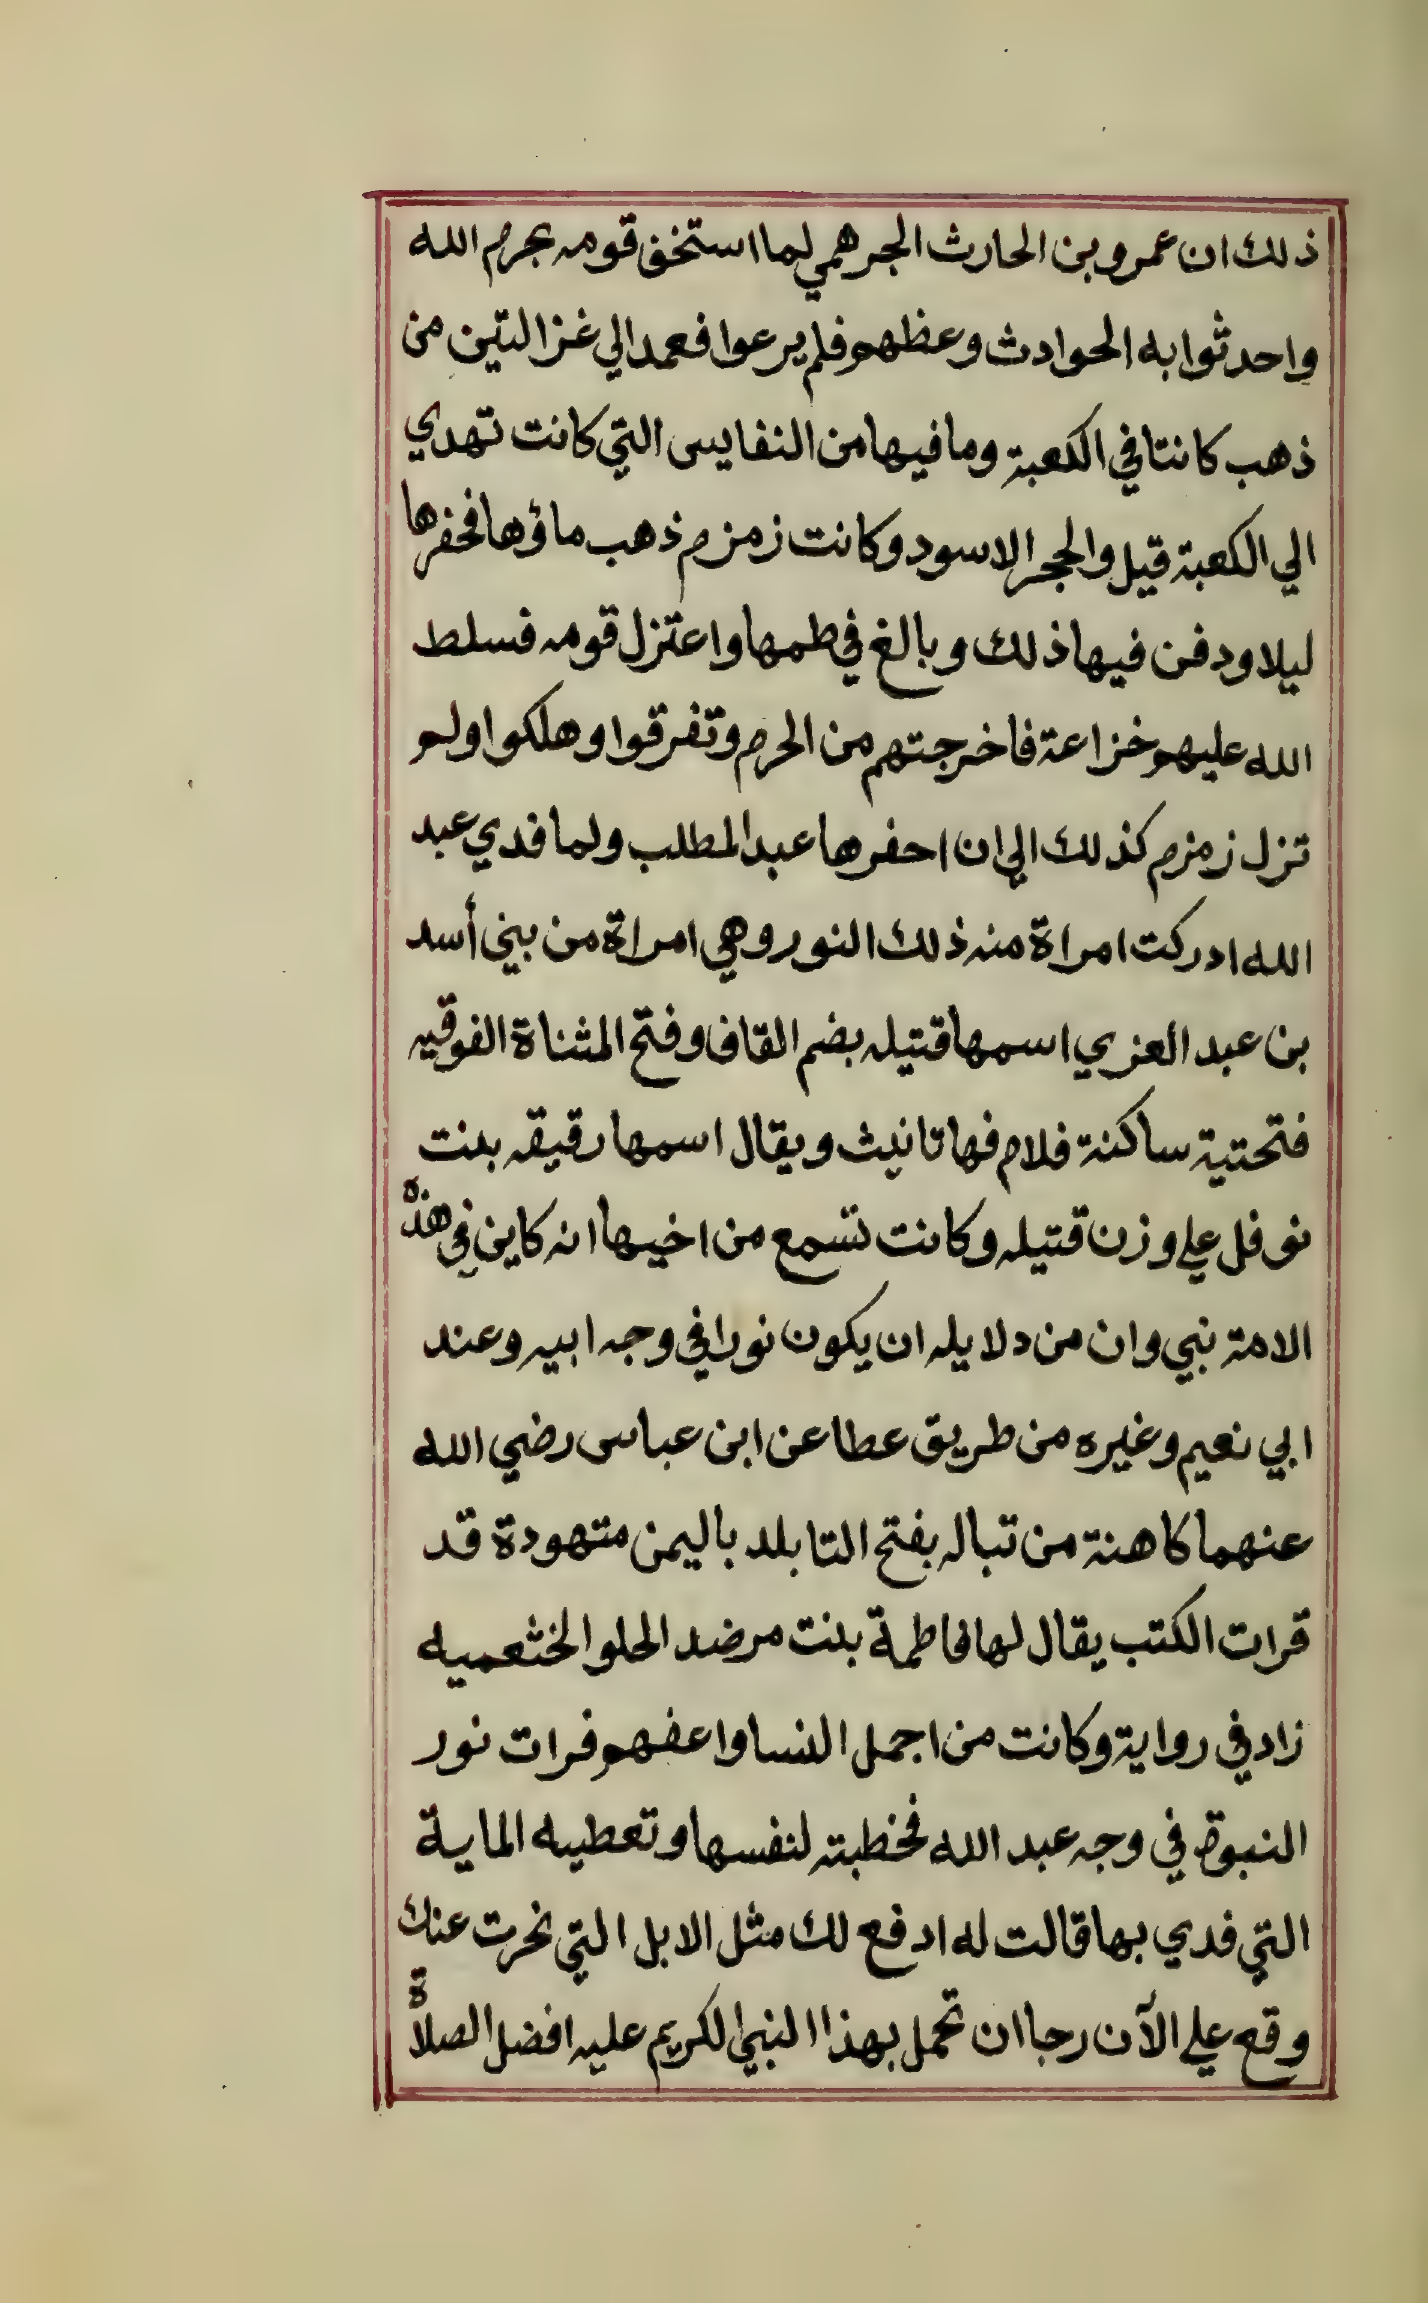 ذلك ان عمرو بن الحارث الجرهمي لما استخف قومه بحرم الله
واحدثوا به الحوادث وعظهم فلم يرعوا فعمد الي غزالتين من
ذهب كانتا في الكعبة وما فيها من النفايس التي كانت تهدي
الي الكعبة قيل والحجر الاسود وكانت زمزم ذهب ماؤها فحفرها
ليلا ودفن فيها ذلك وبالغ في طمها واعتزل قومه فسلط
الله عليهم خزاعة فاخرجتهم من الحرم وتفرقوا وهلكوا ولم
تزل زمزم كذلك الي ان احفرها عبد المطلب ولما فدي عبد
الله ادركت امراة منه ذلك النور وهي امراة من بني أسد
بن عبد العزي اسمها قتيله بضم القاف وفتح المثناة الفوقيه
فتحتية ساكنة فلام فها تانيث ويقال اسمها رقيقه بنت
نوفل علي وزن قتيله وكانت تسمع من اخيها انه كاين في هذه
الامة نبي وان من دلايله ان يكون نورا في وجه ابيه وعند
ابي نعيم وغيره من طريق عطا عن ابن عباس رضي الله
عنهما كاهنة من تباله بفتح التا بلد باليمن متهودة قد
قرات الكتب يقال لها فاطمة بنت مرضد الحلو الخثعميه
زاد في رواية وكانت من اجمل النسا واعفهم فرات نور
النبوة في وجه عبد الله فخطبته لنفسها وتعطيه الماية
التي فدي بها قالت له ادفع لك مثل الابل التي نحرت عنك
وقع علي الآن رجا ان تحمل بهذا النبي الكريم عليه افضل الصلاة